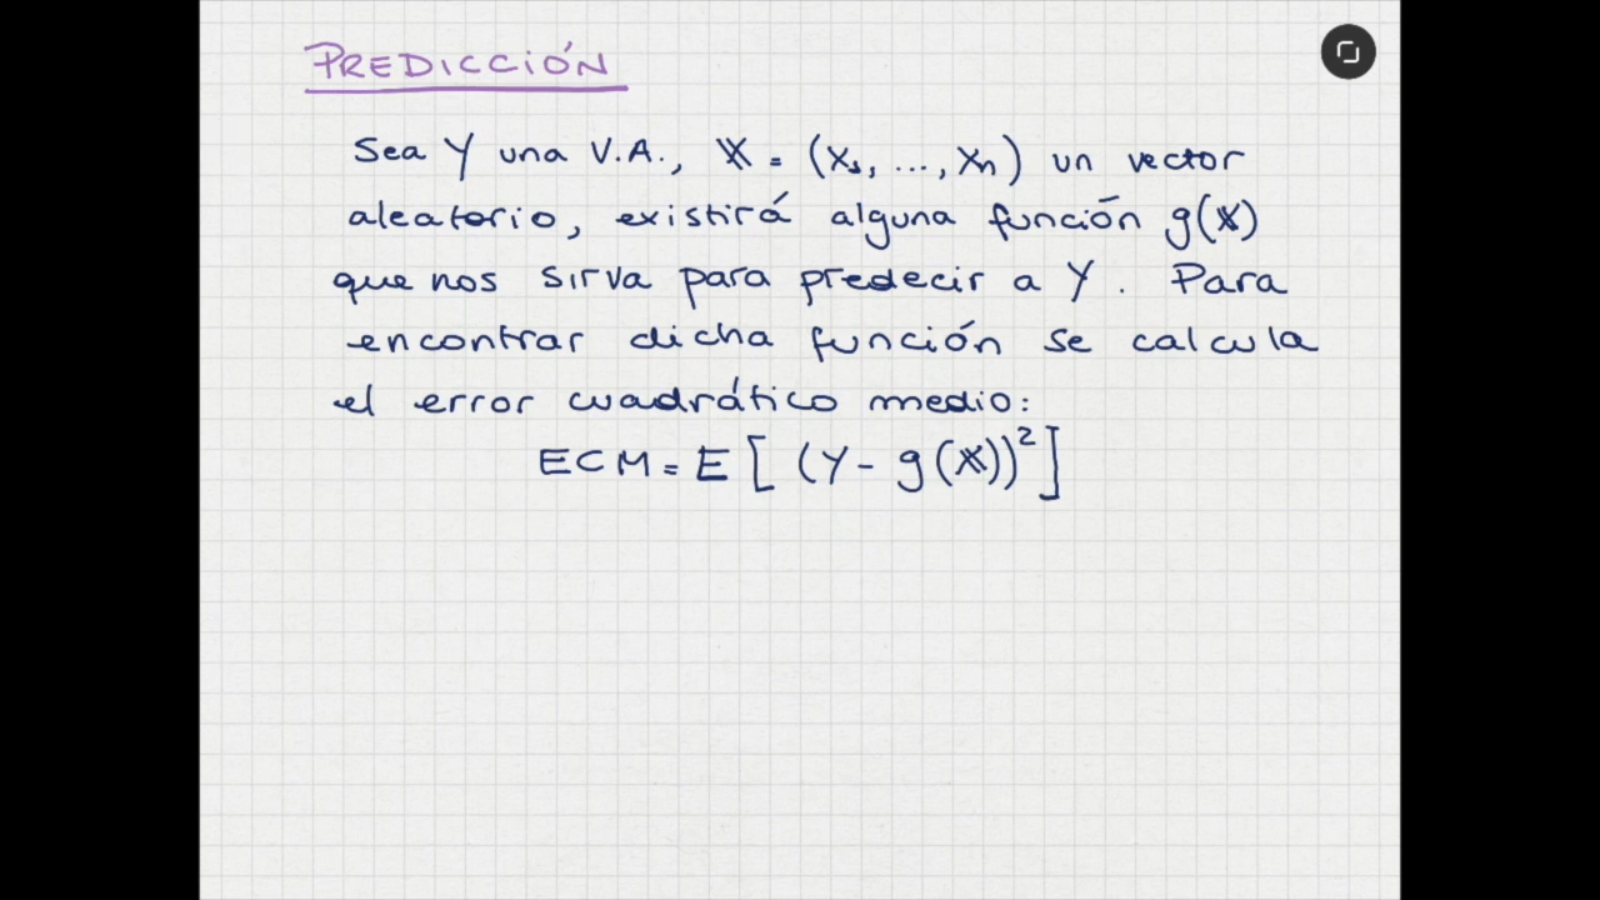 PREDICCIÓN
Sea Y una V.A., 𝕏 = (X₁, ..., Xₙ) un vector
aleatorio, existirá alguna función g(𝕏)
que nos sirva para predecir a Y. Para
encontrar dicha función se calcula
el error cuadrático medio:
ECM = E[(Y - g(𝕏))²]